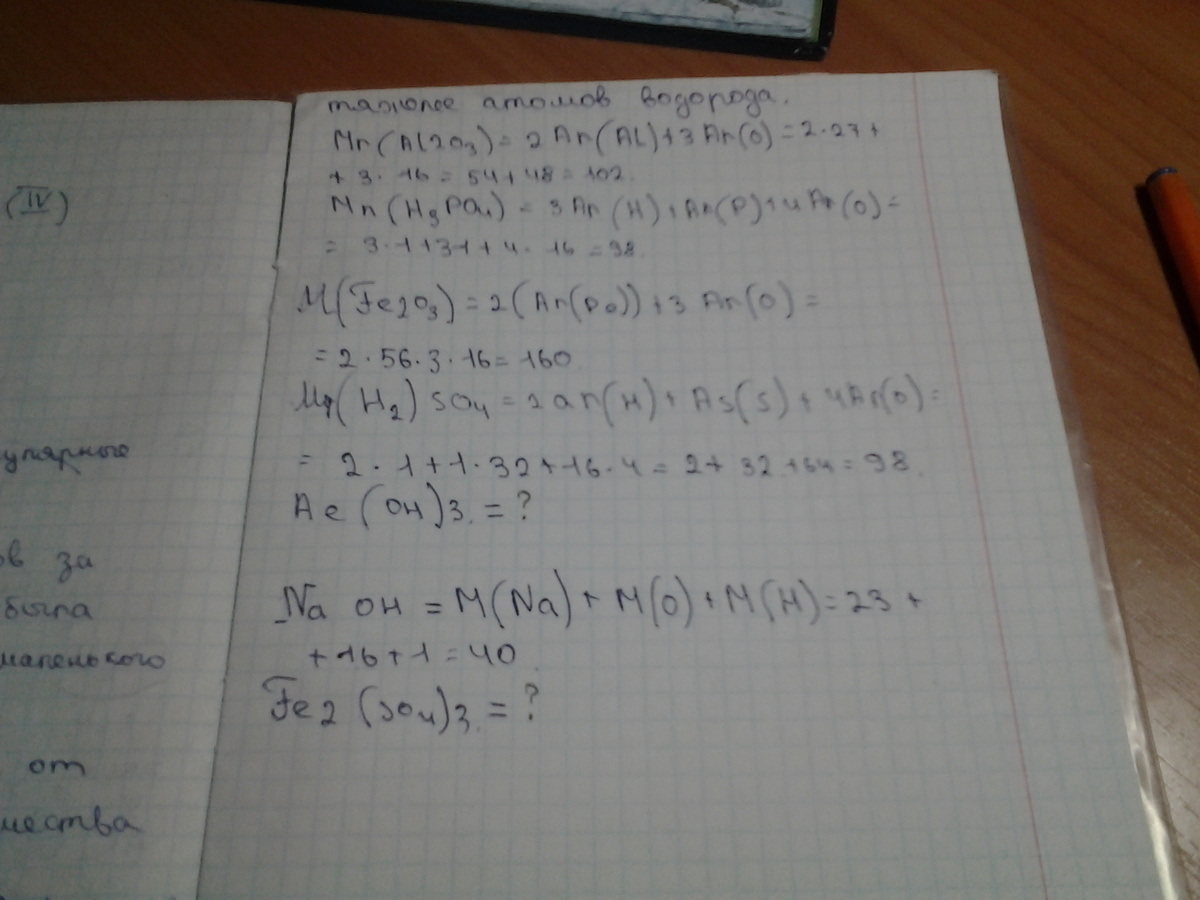 (IV)
улярные
ов за
была
маленького
от
чества
тяжелее атомов водорода.
Mr(Al2O3) = 2Ar(Al)+3Ar(O)=2·27+
+ 3·16=54+48=102.
Mr(H3PO4)=3Ar(H)+Ar(P)+4Ar(O)=
= 3·1+31+4·16=98.
M(Fe2O3)=2(Ar(Fe))+3Ar(O)=
=2·56·3·16=160.
Mr(H2)SO4=2ar(H)+As(S)+4Ar(O)=
= 2·1+1·32+16·4=2+32+64=98.
Ae(OH)3.=?
Na OH=M(Na)+M(O)+M(H)=23+
+16+1=40.
Fe2(SO4)3.=?